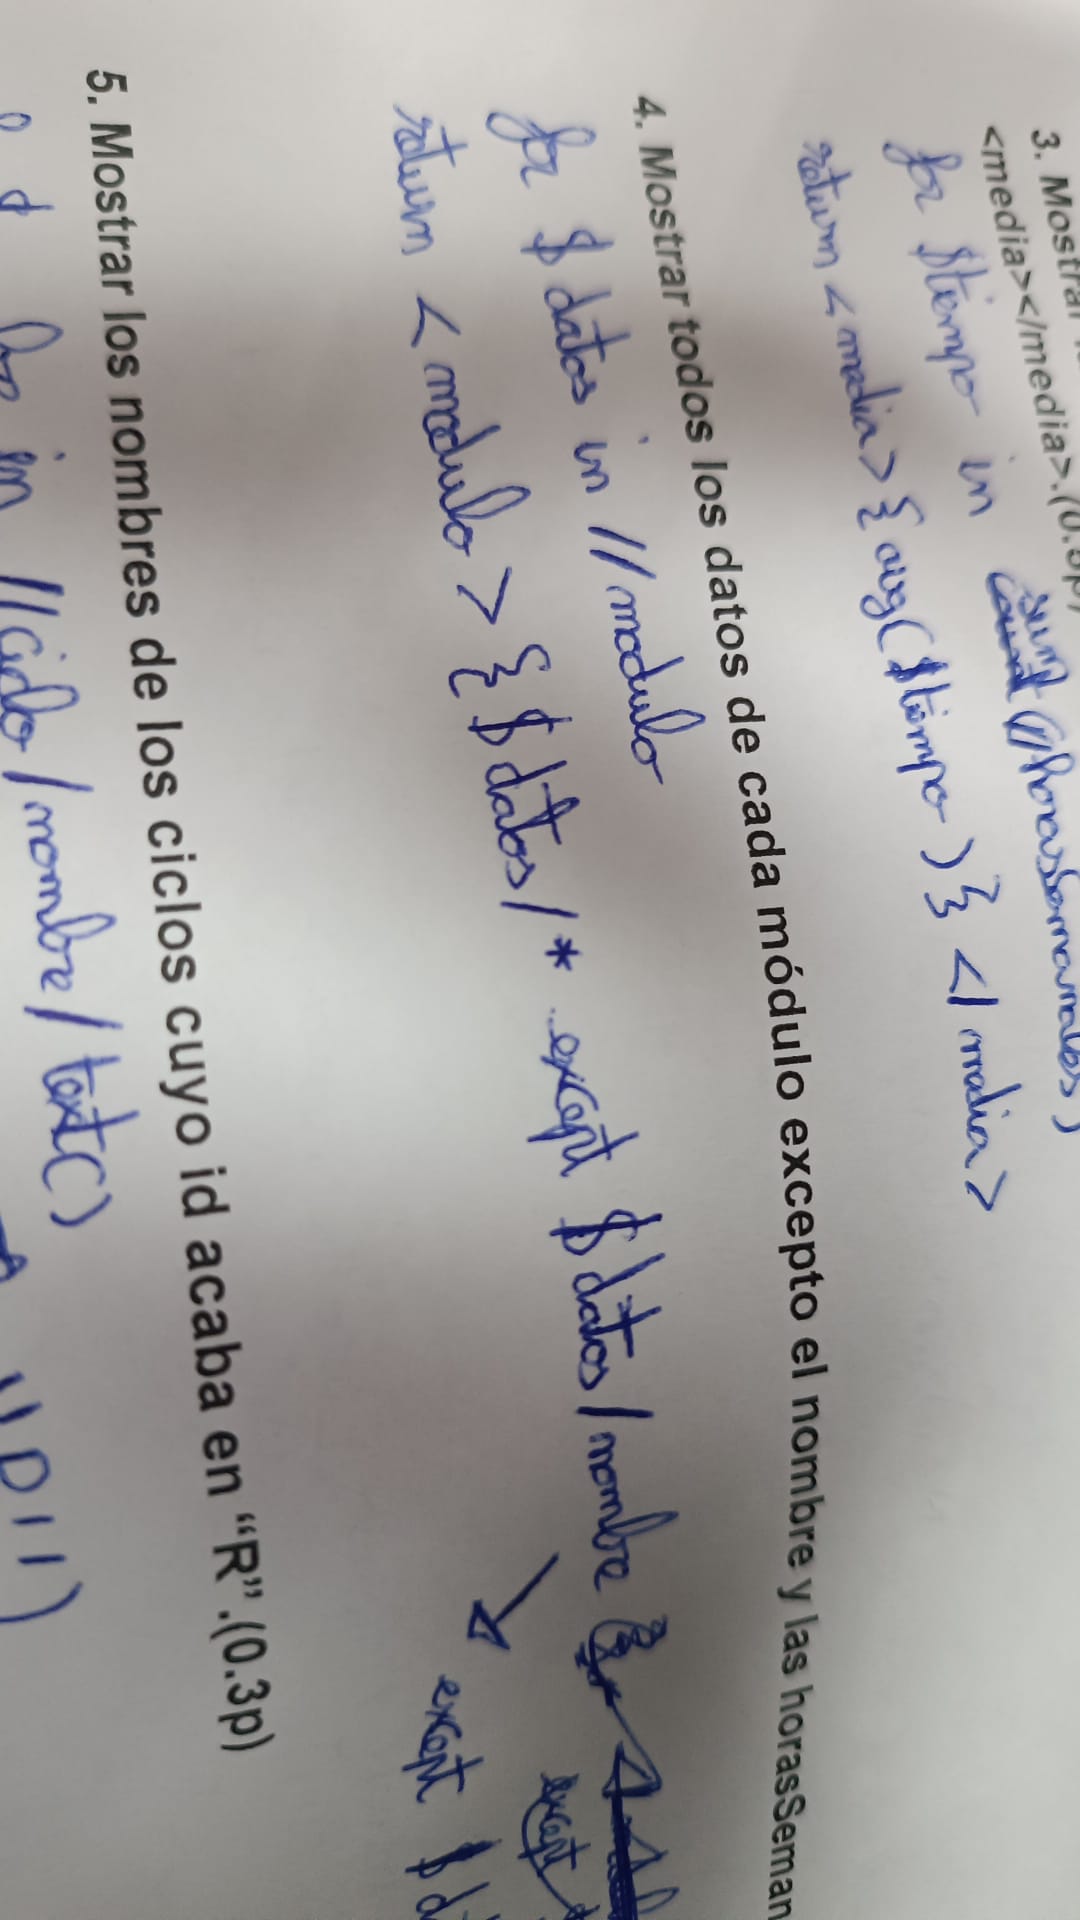 3. Mostrar
<media></media>.(0.3p)
for $tiempo in sum(//horasSemanales)
return <media>{avg($tiempo)}</media>
4. Mostrar todos los datos de cada módulo excepto el nombre y las horasSeman
for $datos in //modulo
return <modulo>{$datos/* except $datos/nombre
except
except $d
5. Mostrar los nombres de los ciclos cuyo id acaba en “R”.(0.3p)
in //ciclo/nombre/text()